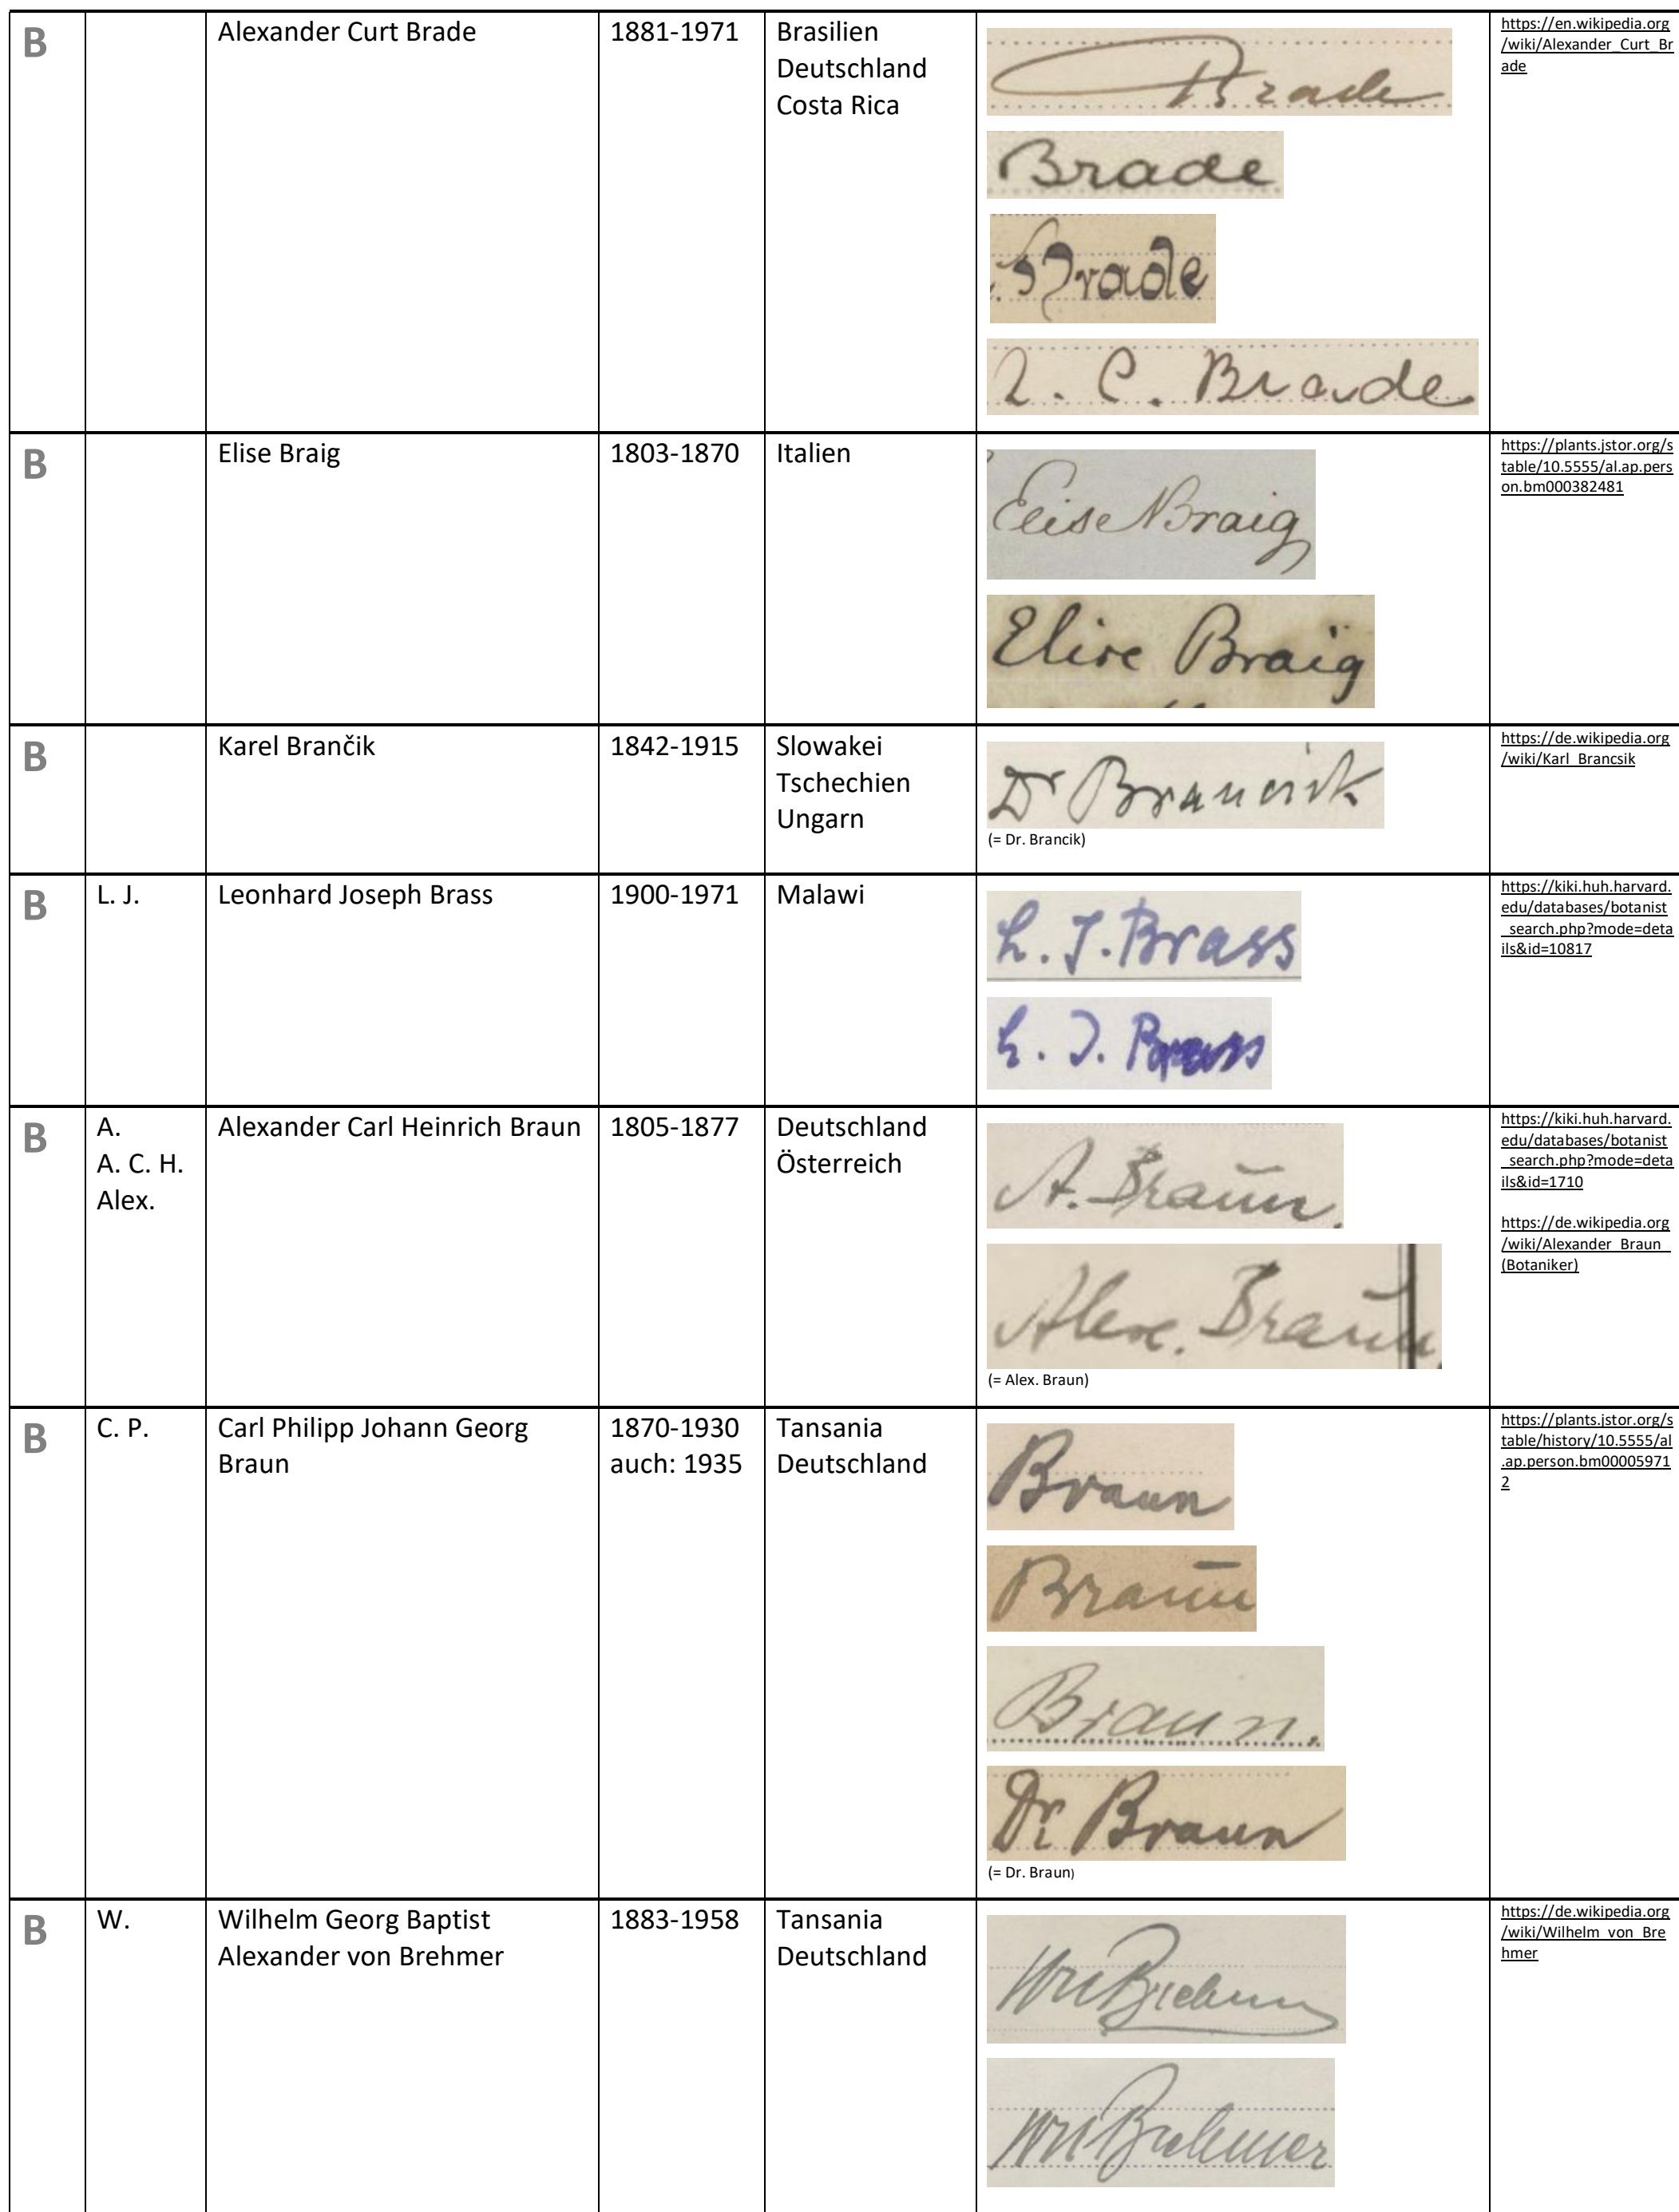 B
Alexander Curt Brade
1881-1971
Brasilien
Deutschland
Costa Rica
Brade
Brade
Brade
A. C. Brade
https://en.wikipedia.org
/wiki/Alexander_Curt_Br
ade
B
Elise Braig
1803-1870
Italien
Elise Braig
Elise Braig
https://plants.jstor.org/s
table/10.5555/al.ap.pers
on.bm000382481
B
Karel Brančik
1842-1915
Slowakei
Tschechien
Ungarn
Dr Brancsik
(= Dr. Brancik)
https://de.wikipedia.org
/wiki/Karl_Brancsik
B
L. J.
Leonhard Joseph Brass
1900-1971
Malawi
L. J. Brass
L. J. Brass
https://kiki.huh.harvard.
edu/databases/botanist
_search.php?mode=deta
ils&id=10817
B
A.
A. C. H.
Alex.
Alexander Carl Heinrich Braun
1805-1877
Deutschland
Österreich
A. Braun.
Alex. Braun
(= Alex. Braun)
https://kiki.huh.harvard.
edu/databases/botanist
_search.php?mode=deta
ils&id=1710
https://de.wikipedia.org
/wiki/Alexander_Braun_
(Botaniker)
B
C. P.
Carl Philipp Johann Georg
Braun
1870-1930
auch: 1935
Tansania
Deutschland
Braun
Braun
Braun.
Dr. Braun
(= Dr. Braun)
https://plants.jstor.org/s
table/history/10.5555/al
.ap.person.bm00005971
2
B
W.
Wilhelm Georg Baptist
Alexander von Brehmer
1883-1958
Tansania
Deutschland
Brehmer
https://de.wikipedia.org
/wiki/Wilhelm_von_Bre
hmer